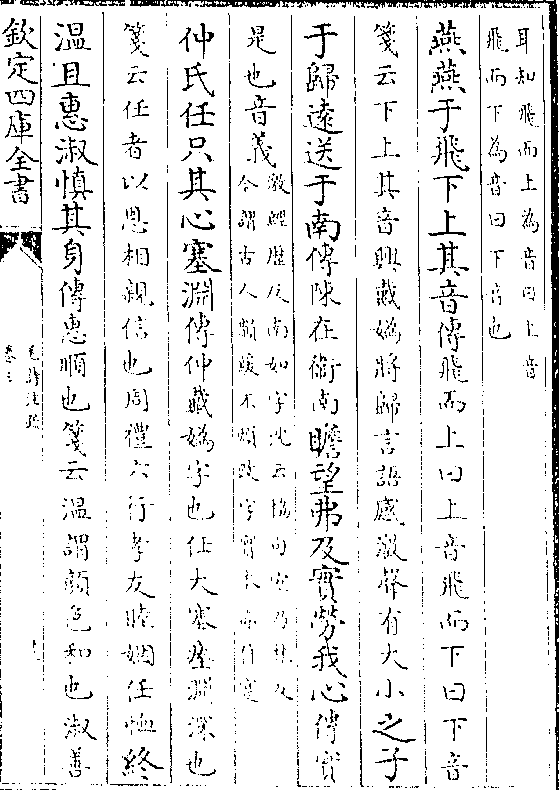 耳知飛而上為音曰上音
飛而下為音曰下音也
燕燕于飛下上其音傳飛而上曰上音飛而下曰下音
箋云下上其音興戴媯將歸言語感激聲有大小之子
于歸遠送于南傳陳在衛南瞻望弗及實勞我心傳實
是也音義
激經歷反南如字沈云協句宜乃林反
今謂古人韻緩不煩改字實本亦作寔
仲氏任只其心塞淵傳仲戴媯字也任大塞瘞淵深也
箋云任者以恩相親信也周禮六行孝友睦姻任恤終
溫且惠淑慎其身傳惠順也箋云溫謂顏色和也淑善
欽定四庫全書
毛詩注疏
卷三